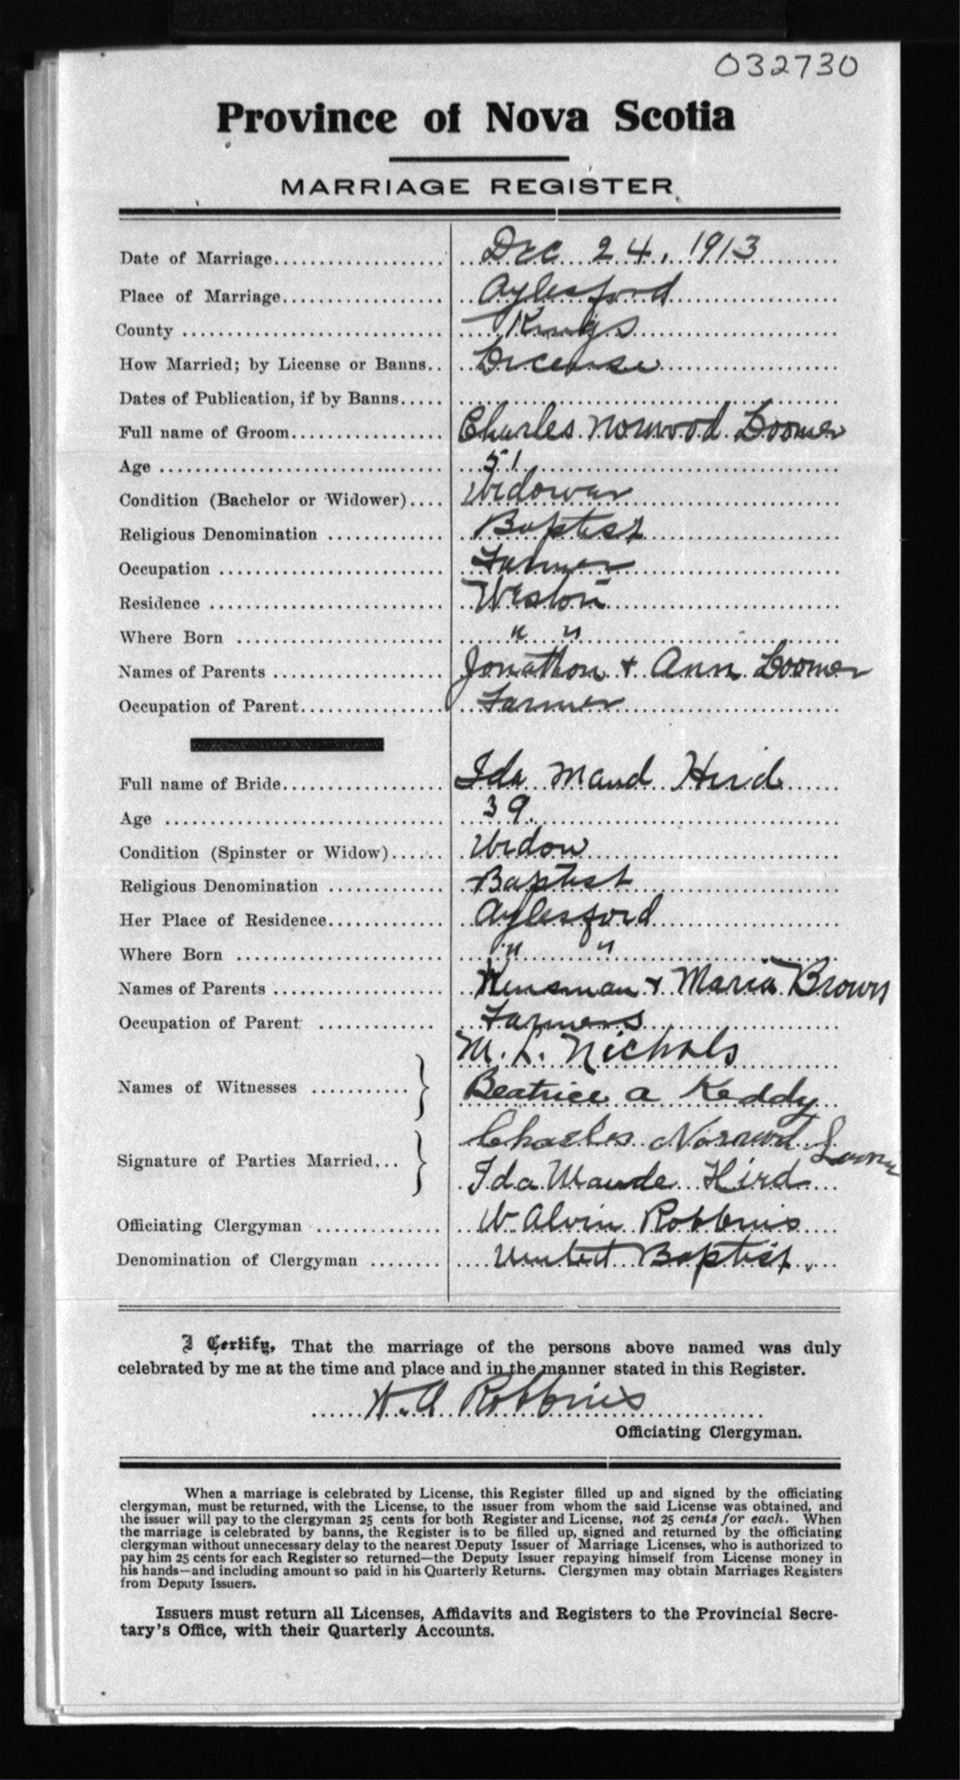 032730
Province of Nova Scotia
MARRIAGE REGISTER
Date of Marriage Dec 24, 1913
Place of Marriage Aylesford
County Kings
How Married; by License or Banns License
Dates of Publication, if by Banns
Full name of Groom Charles Norwood Loomer
Age 51
Condition (Bachelor or Widower) Widower
Religious Denomination Baptist
Occupation Farmer
Residence Weston
Where Born " "
Names of Parents Jonathon + Ann Loomer
Occupation of Parent Farmer
Full name of Bride Ida Maud Hird
Age 39.
Condition (Spinster or Widow) Widow
Religious Denomination Baptist
Her Place of Residence Aylesford
Where Born " "
Names of Parents Kinsman + Maria Brown
Occupation of Parent Farmers
M. L. Nichols
Names of Witnesses
Beatrice A Keddy
Charles Norwood Loomer
Signature of Parties Married
Ida Maude Hird
Officiating Clergyman W Alvin Robbins
Denomination of Clergyman United Baptist.
I Certify, That the marriage of the persons above named was duly
celebrated by me at the time and place and in the manner stated in this Register.
W. A Robbins
Officiating Clergyman.
When a marriage is celebrated by License, this Register filled up and signed by the officiating
clergyman, must be returned, with the License, to the issuer from whom the said License was obtained, and
the issuer will pay to the clergyman 25 cents for both Register and License, not 25 cents for each. When
the marriage is celebrated by banns, the Register is to be filled up, signed and returned by the officiating
clergyman without unnecessary delay to the nearest Deputy Issuer of Marriage Licenses, who is authorized to
pay him 25 cents for each Register so returned—the Deputy Issuer repaying himself from License money in
his hands—and including amount so paid in his Quarterly Returns. Clergymen may obtain Marriages Registers
from Deputy Issuers.
Issuers must return all Licenses, Affidavits and Registers to the Provincial Secre-
tary's Office, with their Quarterly Accounts.